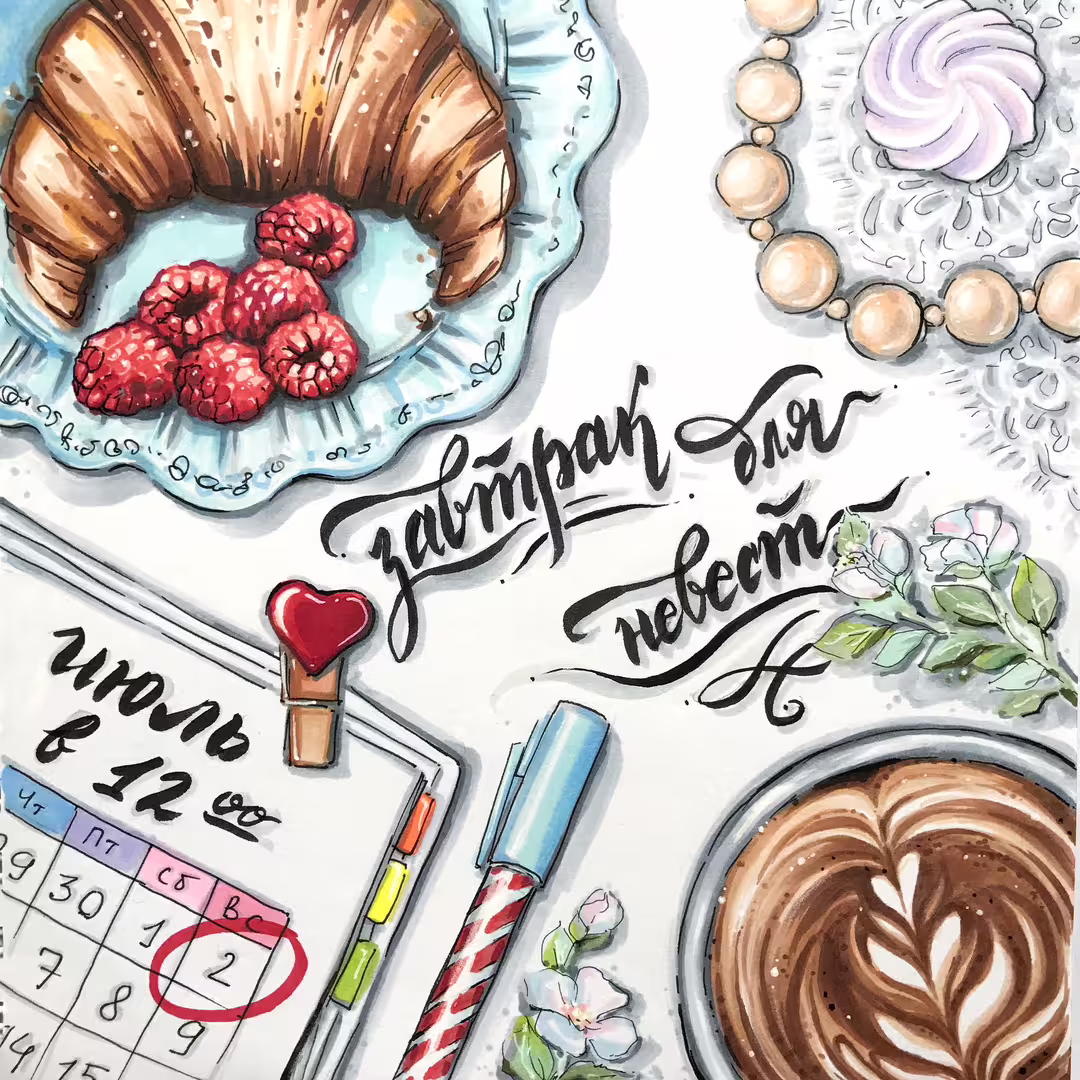 завтрак для
невест
Июль
в 12 00
Чт Пт Сб Вс
29 30 1 2
7 8 9
14 15